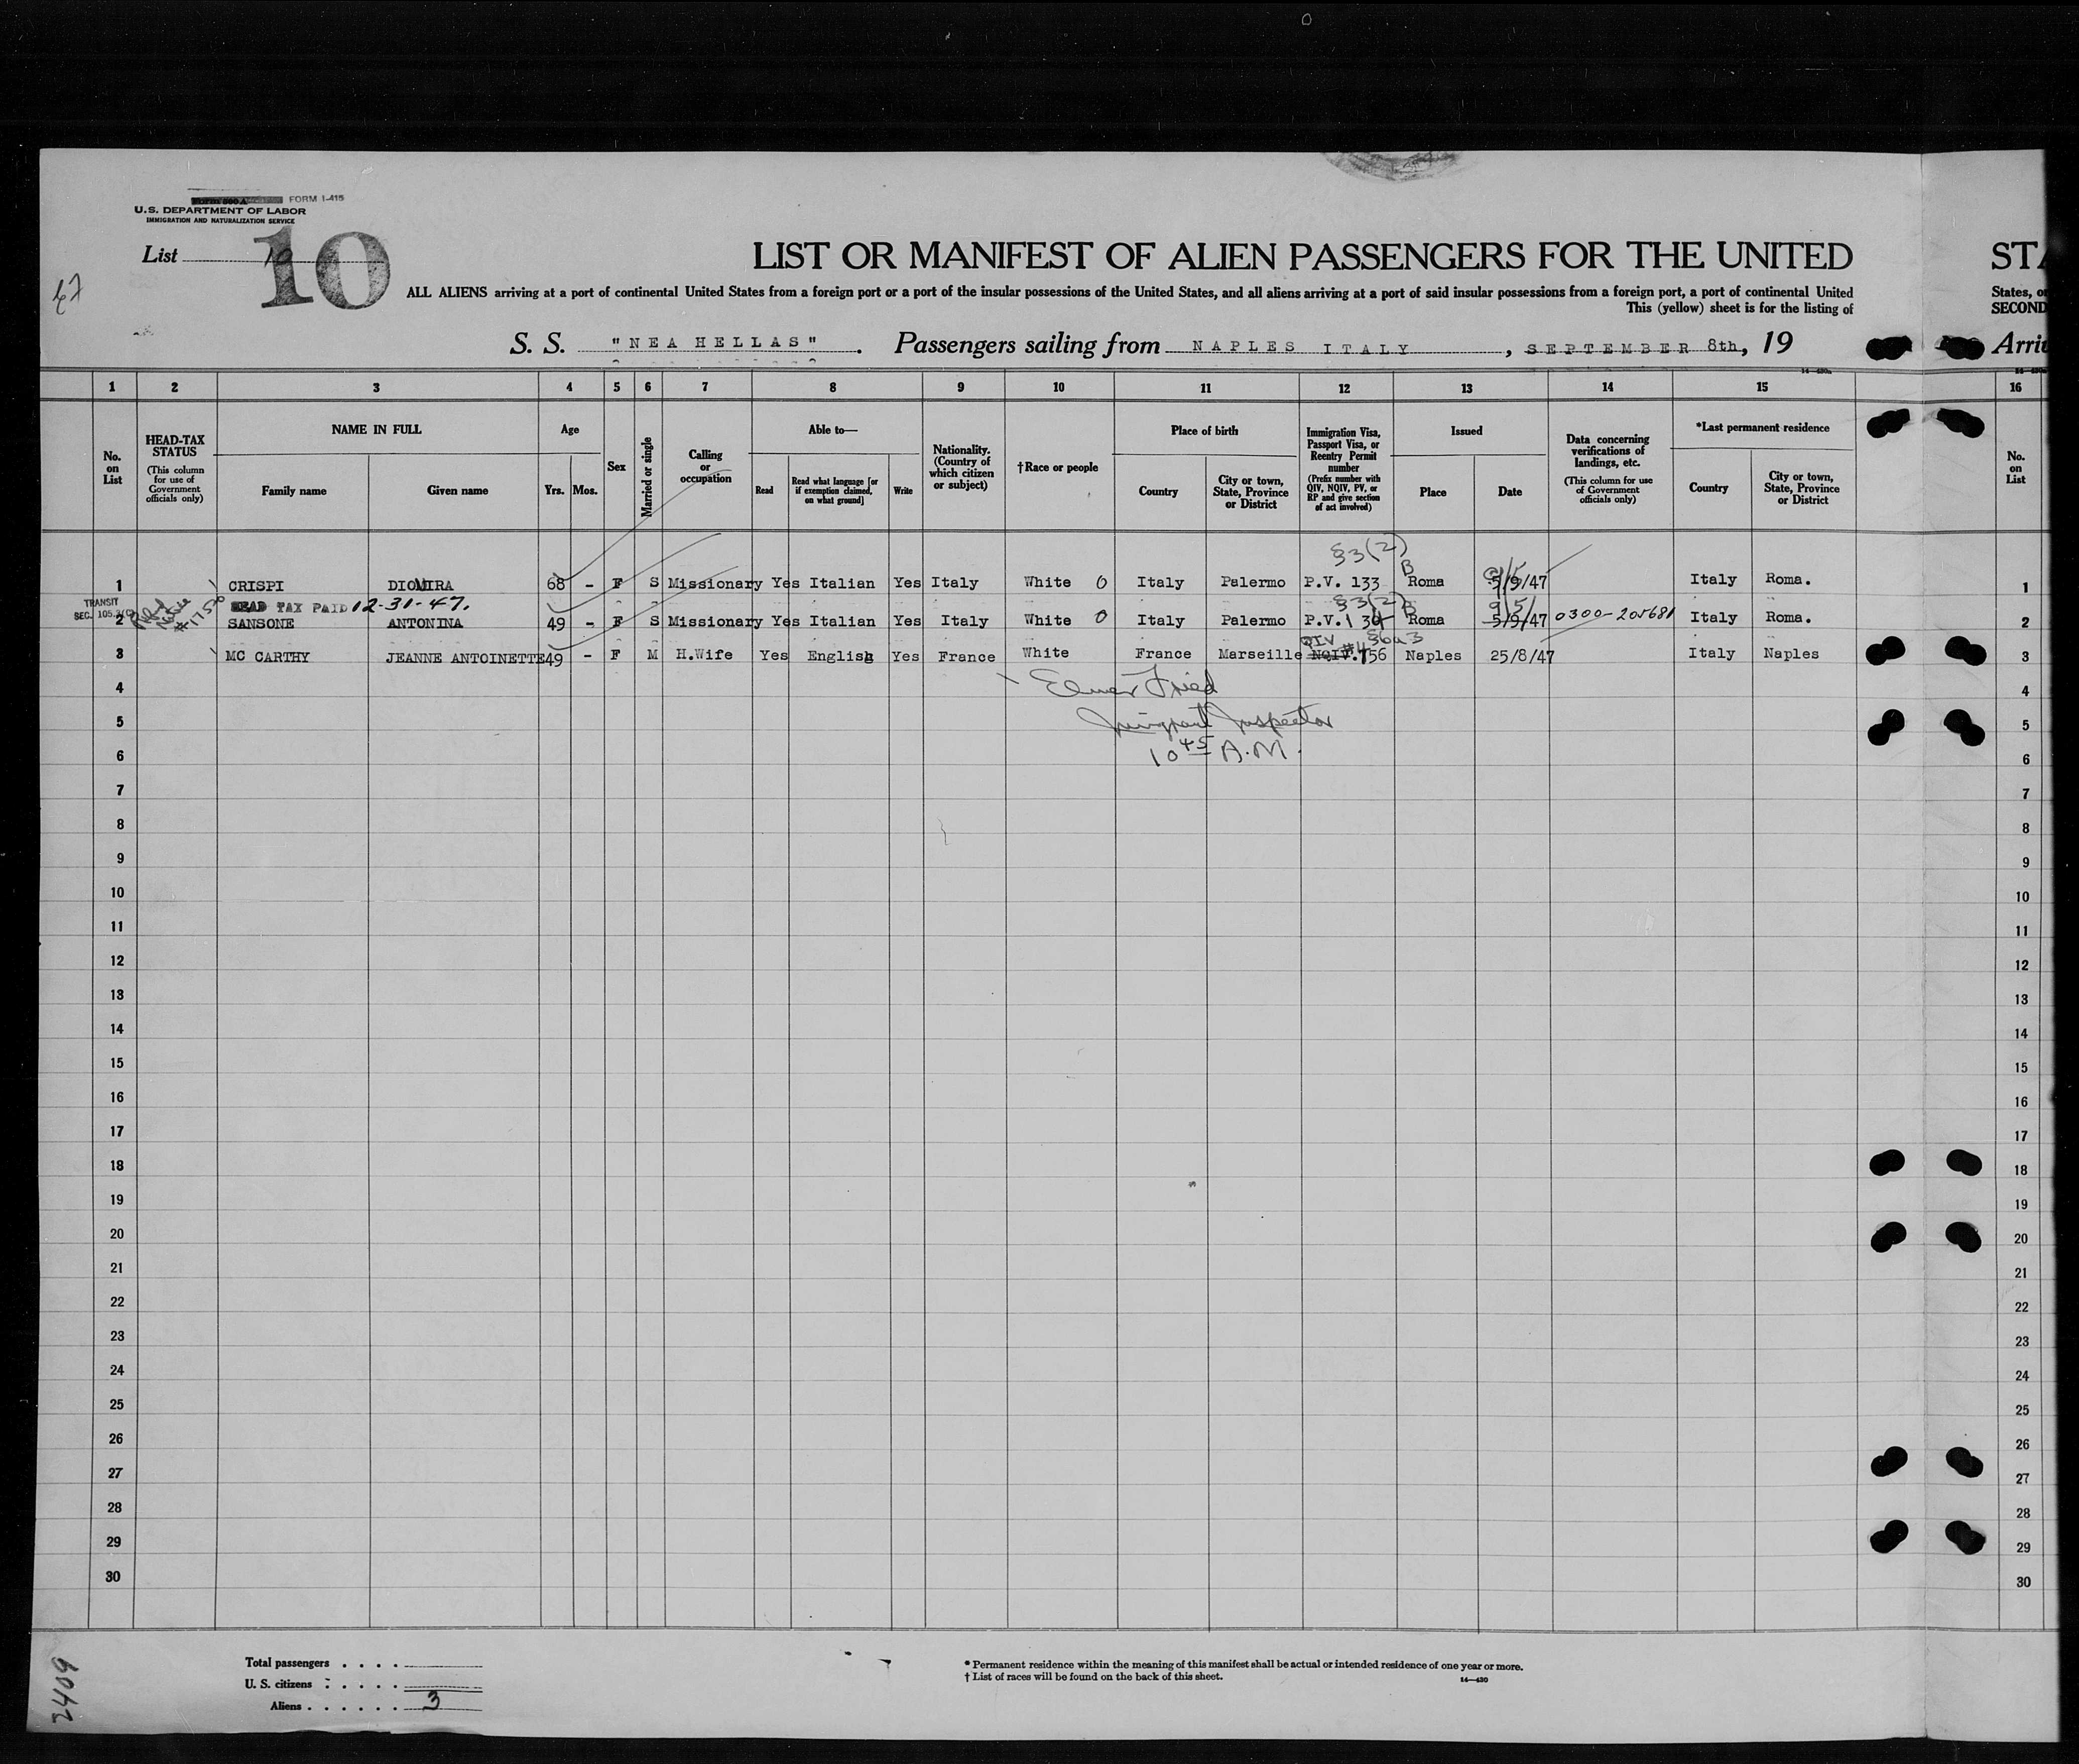 FORM I-415
U.S. DEPARTMENT OF LABOR
IMMIGRATION AND NATURALIZATION SERVICE
List 10
10
47
LIST OR MANIFEST OF ALIEN PASSENGERS FOR THE UNITED STA
ALL ALIENS arriving at a port of continental United States from a foreign port or a port of the insular possessions of the United States, and all aliens arriving at a port of said insular possessions from a foreign port, a port of continental United States, o
This (yellow) sheet is for the listing of SECOND
S. S. "NEA HELLAS". Passengers sailing from NAPLES ITALY, SEPTEMBER 8th, 19 Arri
1 2 3 4 5 6 7 8 9 10 11 12 13 14 15 16
No. on List
HEAD-TAX STATUS (This column for use of Government officials only)
NAME IN FULL Family name Given name
Age Yrs. Mos.
Sex
Married or single
Calling or occupation
Able to— Read Read what language [or if exemption claimed, on what ground] Write
Nationality. (Country of which citizen or subject)
†Race or people
Place of birth Country City or town, State, Province or District
Immigration Visa, Passport Visa, or Reentry Permit number (Prefix number with QIV, NQIV, PV, or RP and give section of act involved)
Issued Place Date
Data concerning verifications of landings, etc. (This column for use of Government officials only)
*Last permanent residence Country City or town, State, Province or District
No. on List
§3(2) B 9/5
1 CRISPI DIOMIRA 68 - F S Missionary Yes Italian Yes Italy White 0 Italy Palermo P.V. 133 Roma 5/9/47 Italy Roma. 1
TRANSIT SEC. 105.3(c) HEAD TAX PAID 12-31-47. §3(2) B 9/5/
2 SANSONE ANTONINA 49 - F S Missionary Yes Italian Yes Italy White 0 Italy Palermo P.V.134 Roma 5/9/47 0300-205681 Italy Roma. 2
QIV §6a3
3 MC CARTHY JEANNE ANTOINETTE 49 - F M H.Wife Yes English Yes France White France Marseille NQIV.756 Naples 25/8/47 Italy Naples 3
4 Elmer Fried 4
5 Immigrant Inspector 5
6 10 45 A.M. 6
7 7
8 8
9 9
10 10
11 11
12 12
13 13
14 14
15 15
16 16
17 17
18 18
19 19
20 20
21 21
22 22
23 23
24 24
25 25
26 26
27 27
28 28
29 29
30 30
Total passengers . . . .
U. S. citizens . . . . .
Aliens . . . . . . 3
* Permanent residence within the meaning of this manifest shall be actual or intended residence of one year or more.
† List of races will be found on the back of this sheet.
14—430
2409